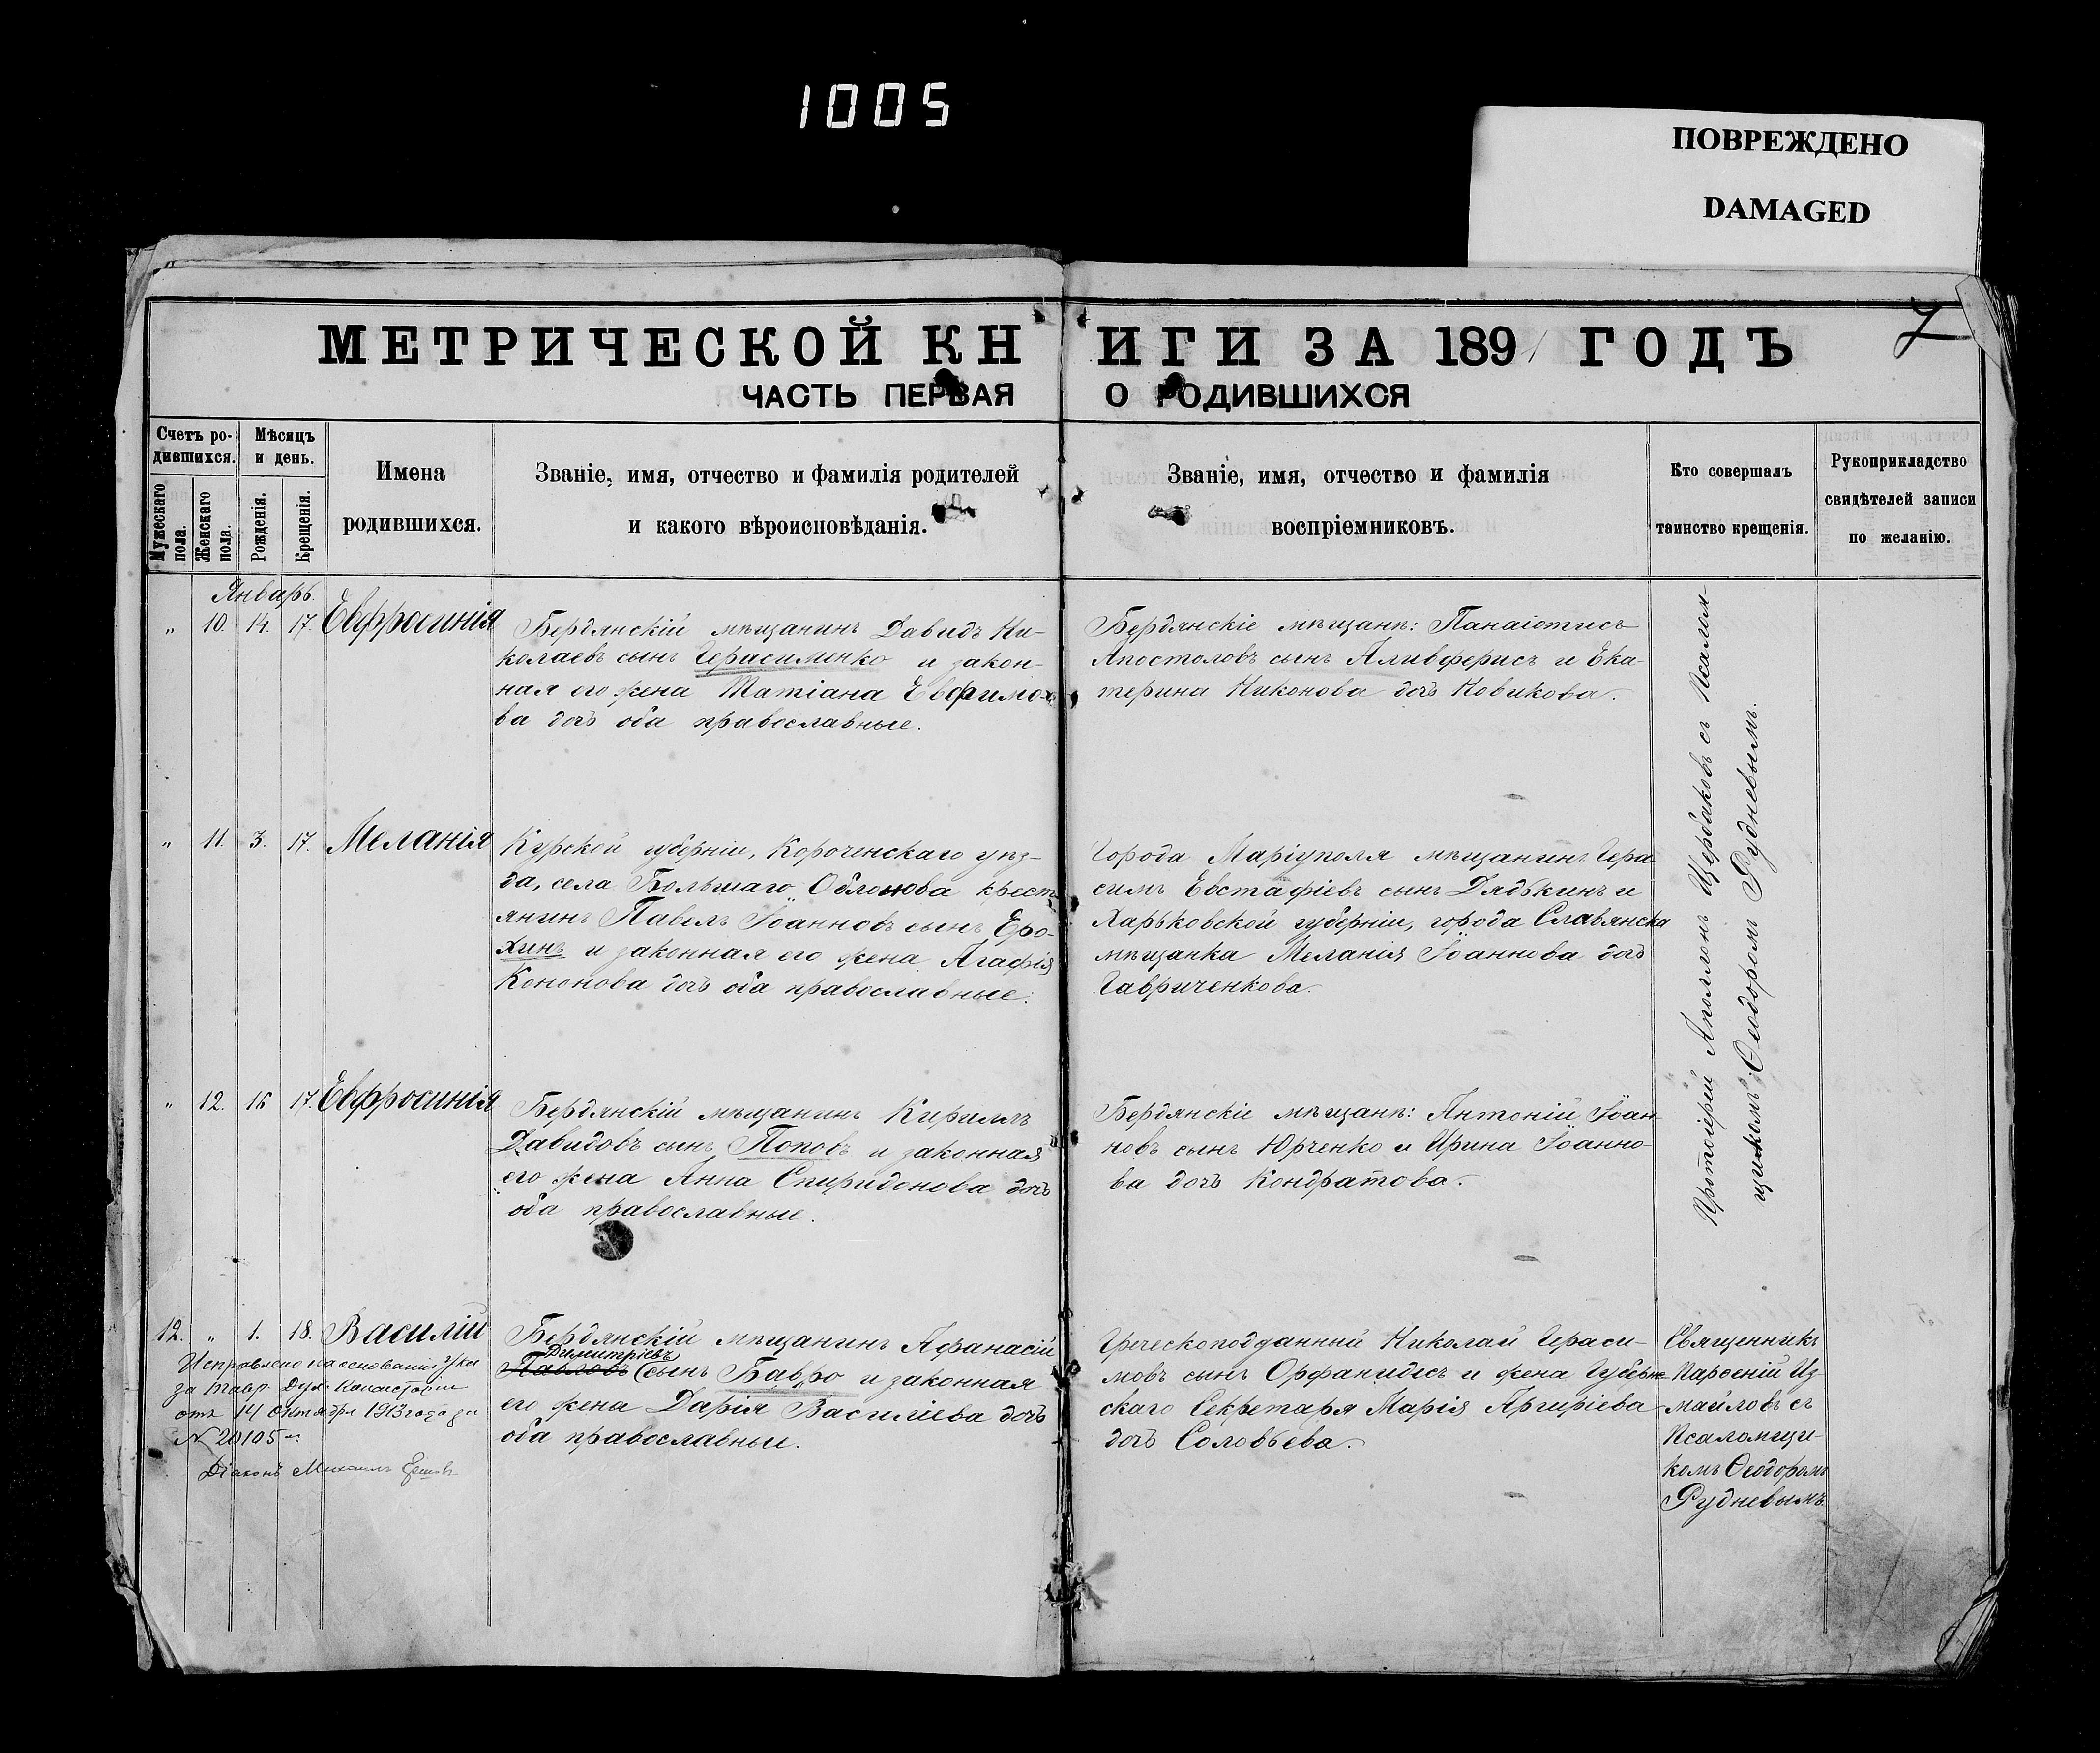 1005
ПОВРЕЖДЕНО
DAMAGED
7
МЕТРИЧЕСКОЙ КНИГИ ЗА 1891 ГОДЪ
ЧАСТЬ ПЕРВАЯ О РОДИВШИХСЯ
Счетъ родившихся.
Мужескаго пола.
Женскаго пола.
Мѣсяцъ и день.
Рожденія.
Крещенія.
Имена
родившихся.
Званіе, имя, отчество и фамилія родителей
и какого вѣроисповѣданія.
Званіе, имя, отчество и фамилія
воспріемниковъ.
Кто совершалъ
таинство крещенія.
Рукоприкладство
свидѣтелей записи
по желанію.
Январь.
" 10. 14. 17. Евфросинія
Бердянскій мѣщанинъ Давидъ Ни-
колаевъ сынъ Герасименко и закон-
ная его жена Татіана Евфимо-
ва дочь оба православные.
Бердянскіе мѣщане: Панаіотисъ
Апостоловъ сынъ Аливферисъ и Ека-
терина Никонова дочь Новикова.
Протоіерей Аполлонъ Щербаковъ съ Псалом-
щикомъ Ѳеодоромъ Рудневымъ.
" 11. 3. 17. Меланія
Курской губерніи, Короченскаго уѣз-
да, села Большаго Облонова крест-
янинъ Павелъ Іоанновъ сынъ Еро-
хинъ и законная его жена Агафія
Кононова дочь оба православные.
Города Маріуполя мѣщанинъ Гера
симъ Евстафіевъ сынъ Дядькинъ и
Харьковской губерніи, города Славянска
мѣщанка Меланія Іоаннова дочь
Гавриченкова.
" 12. 16 17. Евфросинія
Бердянскій мѣщанинъ Кириллъ
Давидовъ сынъ Поповъ и законная
его жена Анна Спиридонова дочь
оба православные.
Бердянскіе мѣщане: Антоній Іоан-
новъ сынъ Юрченко и Ирина Іоанно-
ва дочь Кондратова.
12. " 1. 18. Василій
Исправлено на основаніи указа
за Тавр. Дух. Консисторіи
отъ 14 Октября 1913 года за
№ 20105
Діаконъ Михаилъ
Бердянскій мѣщанинъ Афанасій
Димитріевъ
Павловъ сынъ Бавро и законная
его жена Дарія Василіева дочь
оба православные.
Греческоподданный Николай Гераси-
мовъ сынъ Орфанидисъ и жена Губерн-
скаго Секретаря Марія Аргиріева
дочь Соловьева.
Священникъ
Парѳеній Из-
майловъ съ
Псаломщи-
комъ Ѳеодоромъ
Рудневымъ.